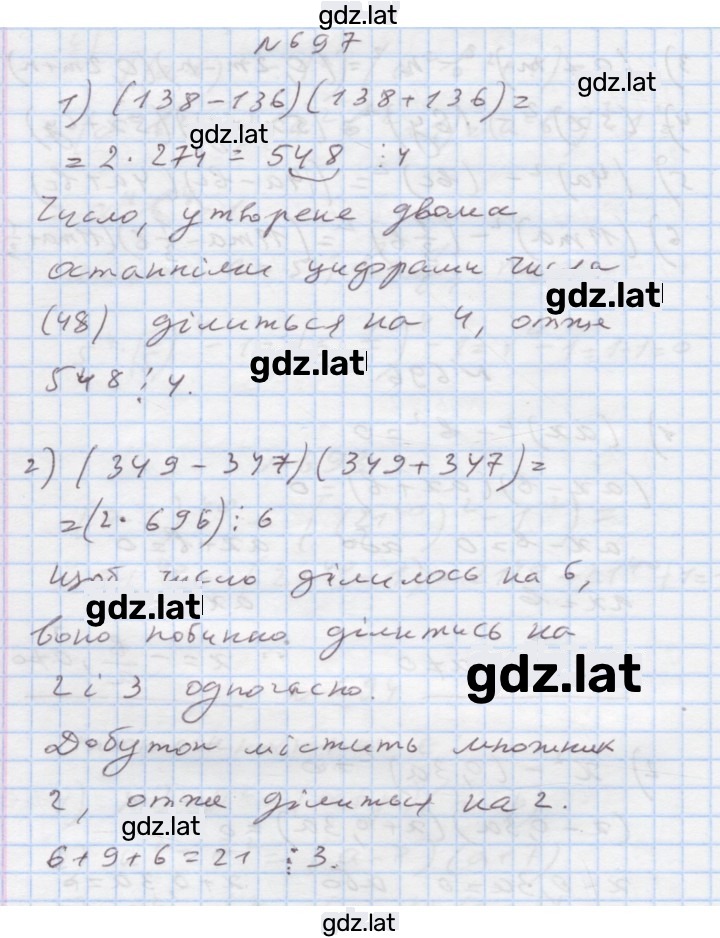 gdz.lat
№697
gdz.lat
1) (138-136)(138+136)=
gdz.lat
= 2·274 = 548 ⋮4
Число, утворене двома
останніми цифрами
gdz.lat
(48) ділиться на 4, отже
gdz.lat
548⋮4.
2) (349-347)(349+347)=
=(2·696)⋮6
Щоб число ділилось на 6,
gdz.lat
воно повинно ділитись на
gdz.lat
2 і 3 одночасно.
Добуток містить множник
2, отже ділиться на 2.
gdz.lat
6+9+6=21 ⋮3.
gdz.lat